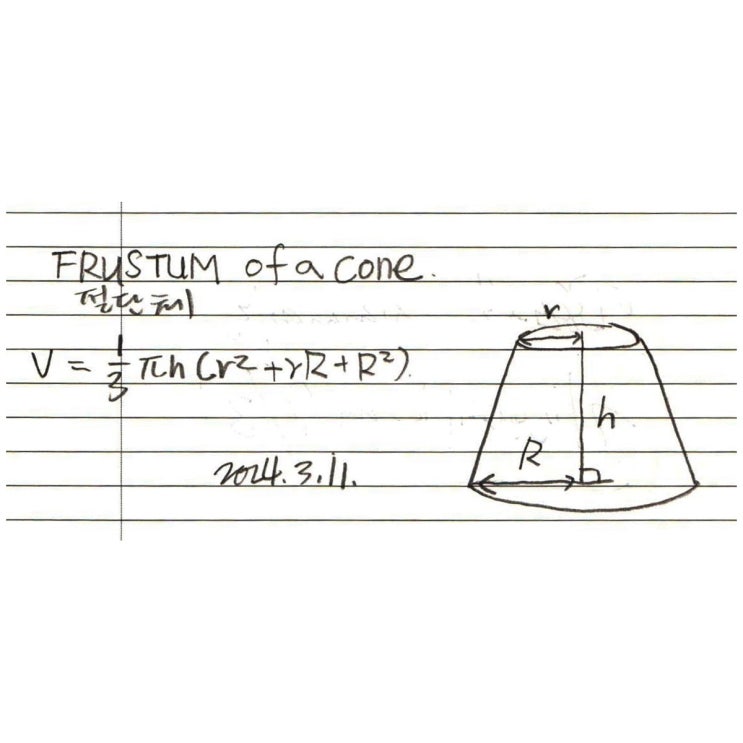 FRUSTUM of a cone.
절단체
V = 1/3 πh (r² + rR + R²).
2024.3.11.
r
h
R